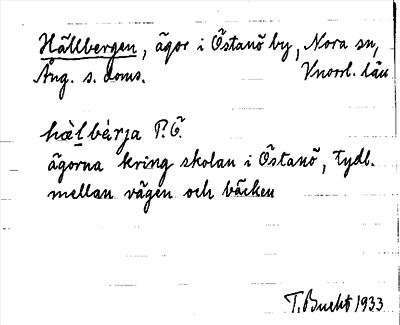 Hällbergen, ägor i Östanö by, Nora sn,
Ång. s. doms. Vnorrl. län
hæ̀l bárja P.Ö.
ägorna kring skolan i Östanö, tydl.
mellan vägen och bäcken
T. Bucht 1933